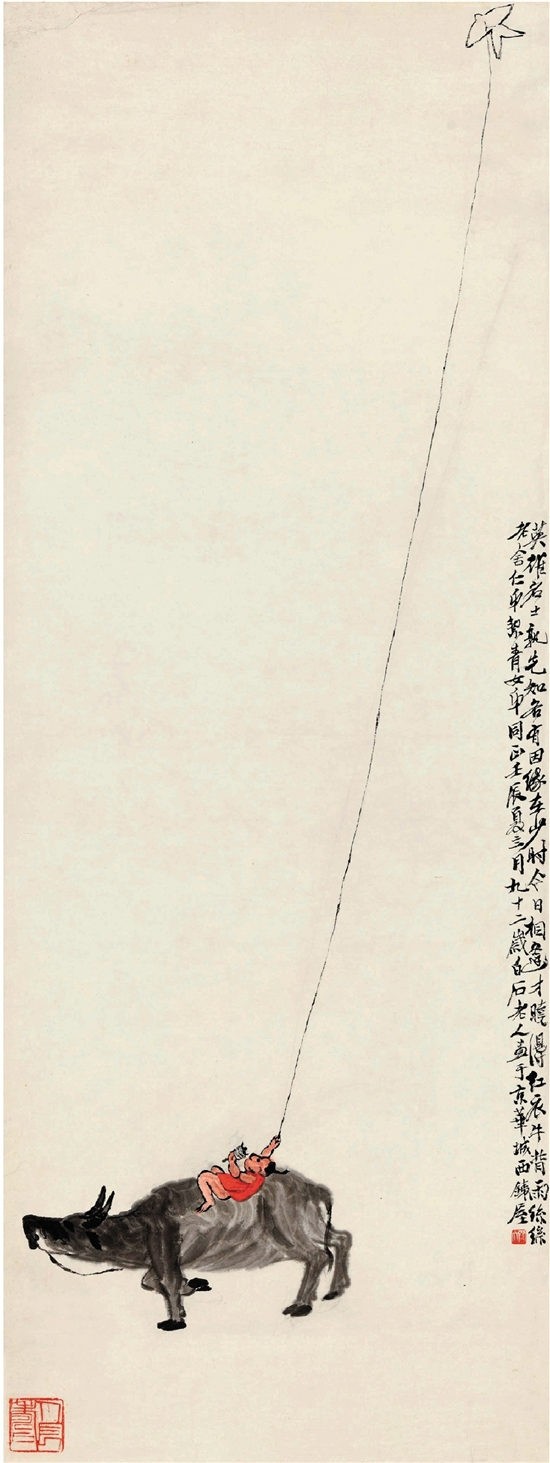 英雄名士孰先知各有因緣在少時今日相逢才曉得紅衣牛背雨絲絲
老舍仁弟絜青女弟同正壬辰夏三月九十二歲白石老人畫于京華城西鐵屋
人長壽